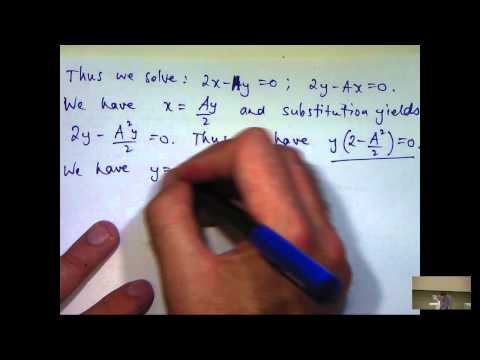 Thus we solve: 2x-Ay=0; 2y-Ax=0.
We have x= Ay/2 and substitution yields
2y- A²y/2 =0. Thus have y(2-A²/2)=0.
We have y=